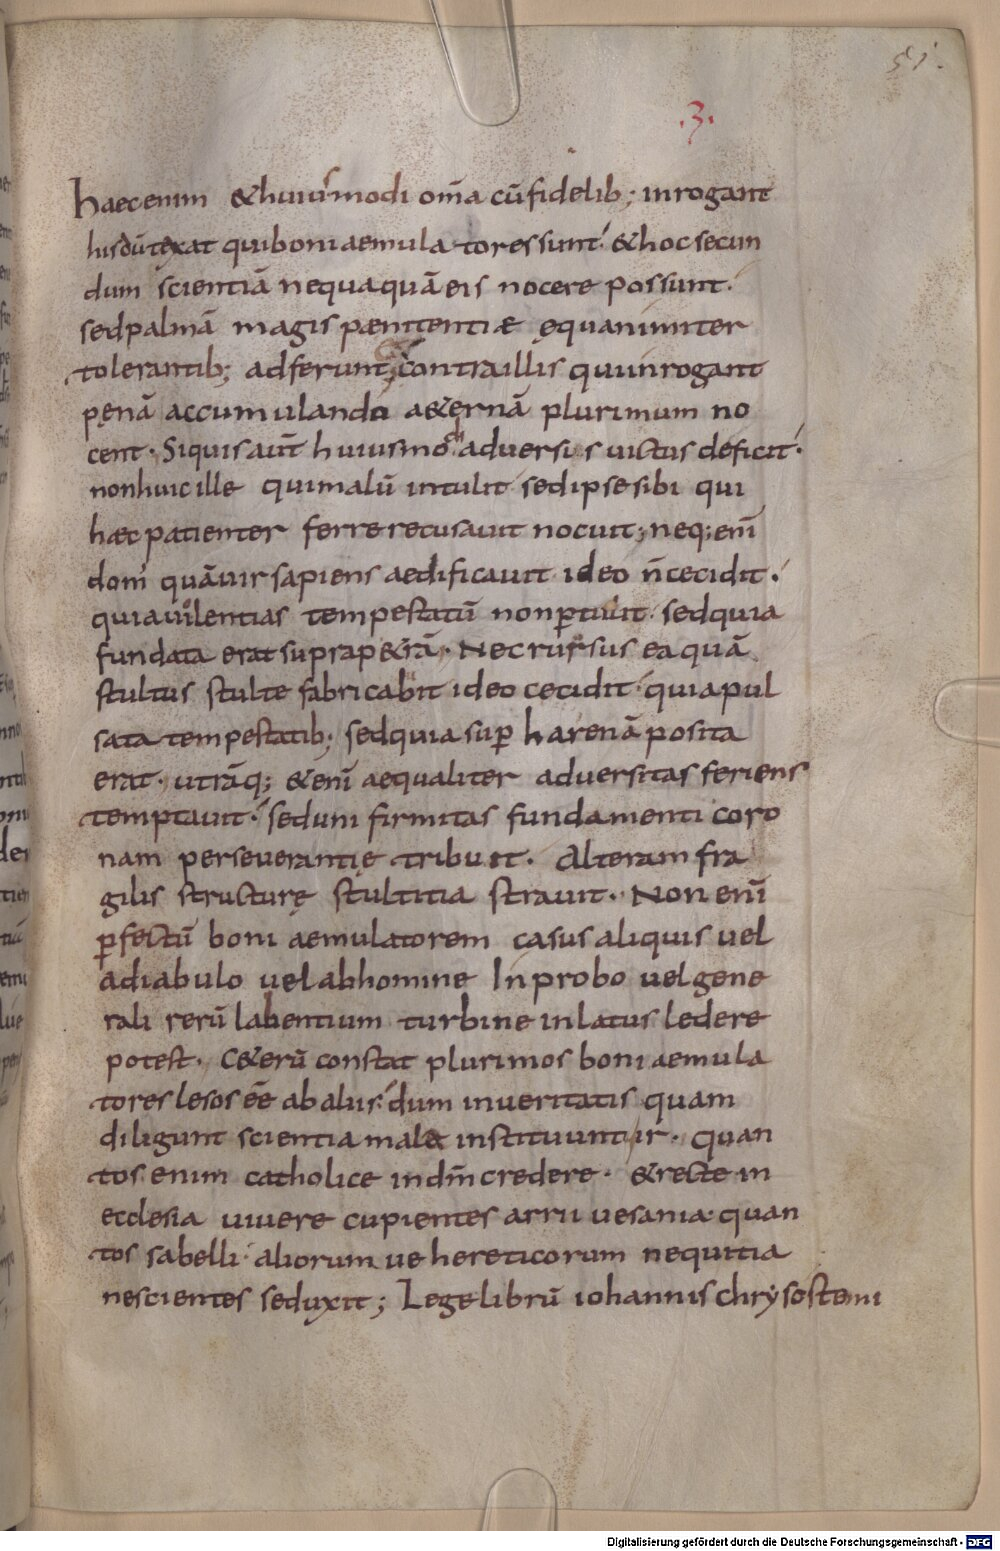 51.
.3.
haec enim &huiusmodi om̄a cū fidelib; inrogant
his dūtaxat qui boni aemulatores sunt. &hoc secun
dum scientiā nequaquā eis nocere possunt.
sed palmā magis paenitentiæ ęquanimiter
tolerantib; adferunt, contra illis qui inrogant
penā accumulando a&ernā plurimum no
cent. Si quis aut̄ huiusmodi adversis victus deficit.
non huic ille qui malū intulit sed ipse sibi qui
hæc patienter ferre recusavit nocuit; neq; enī
dom quā vir sapiens aedificavit ideo n̄ cecidit.
quia violentias tempestatū non ꝑtulit sed quia
fundata erat supra p&rā. Nec rursus ea quā
stultus stulte fabricabit ideo cecidit quia pul
sata tempestatib; sed quia suꝑ harenā posita
erat. utrāq; &enī aequaliter adversitas feriens
temptavit. sed uni firmitas fundamenti coro
nam perseverantię tribuit. Alteram fra
gilis structurę stultitia stravit. Non enī
ꝑfectū boni aemulatorem casus aliquis vel
a diabulo vel ab homine Inprobo vel gene
rali rerū labentium turbine inlatus ledere
potest. C&erū constat plurimos boni aemula
tores lesos eē ab aliis. dum in veritatis quam
diligunt scientia male instituuntur. quan
tos enim catholice in dm̄ credere. &recte in
ecclesia vivere cupientes arrii vesania. quan
tos sabelli. aliorum ve hereticorum nequitia
nescientes seduxit; Lege librū iohannis chrysostemi
Digitalisierung gefördert durch die Deutsche Forschungsgemeinschaft - DFG